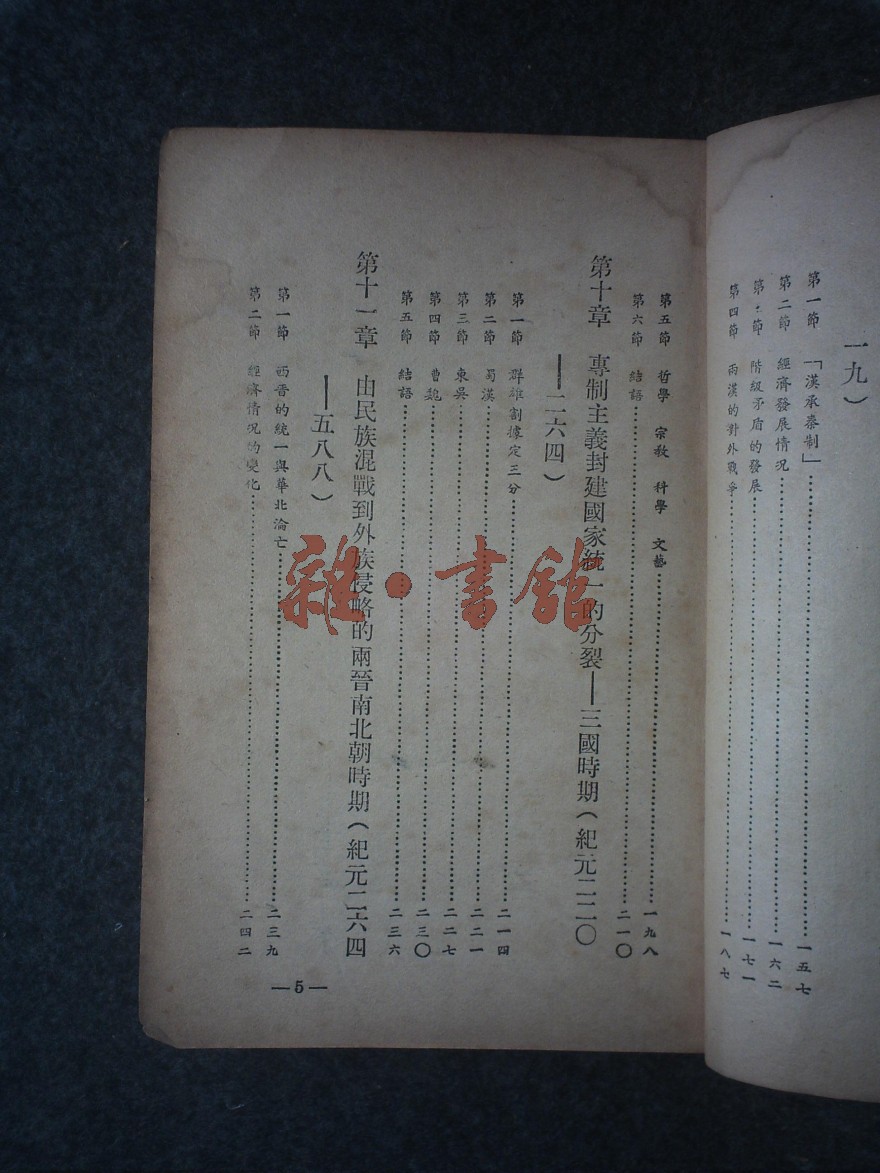 一九）
第一節 「漢承秦制」 一五七
第二節 經濟發展情況 一六二
第三節 階級矛盾的發展 一七一
第四節 兩漢的對外戰爭 一八七
第五節 哲學 宗教 科學 文藝 一九八
第六節 結語 二一〇
第十章 專制主義封建國家統一的分裂——三國時期（紀元二二〇
——二六四）
第一節 群雄割據定三分 二一四
第二節 蜀漢 二二一
第三節 東吳 二二七
第四節 曹魏 二三〇
第五節 結語 二三六
第十一章 由民族混戰到外族侵略的兩晉南北朝時期（紀元二六四
——五八八）
第一節 西晉的統一與華北淪亡 二三九
第二節 經濟情況的變化 二四二
—5—
雜·書館